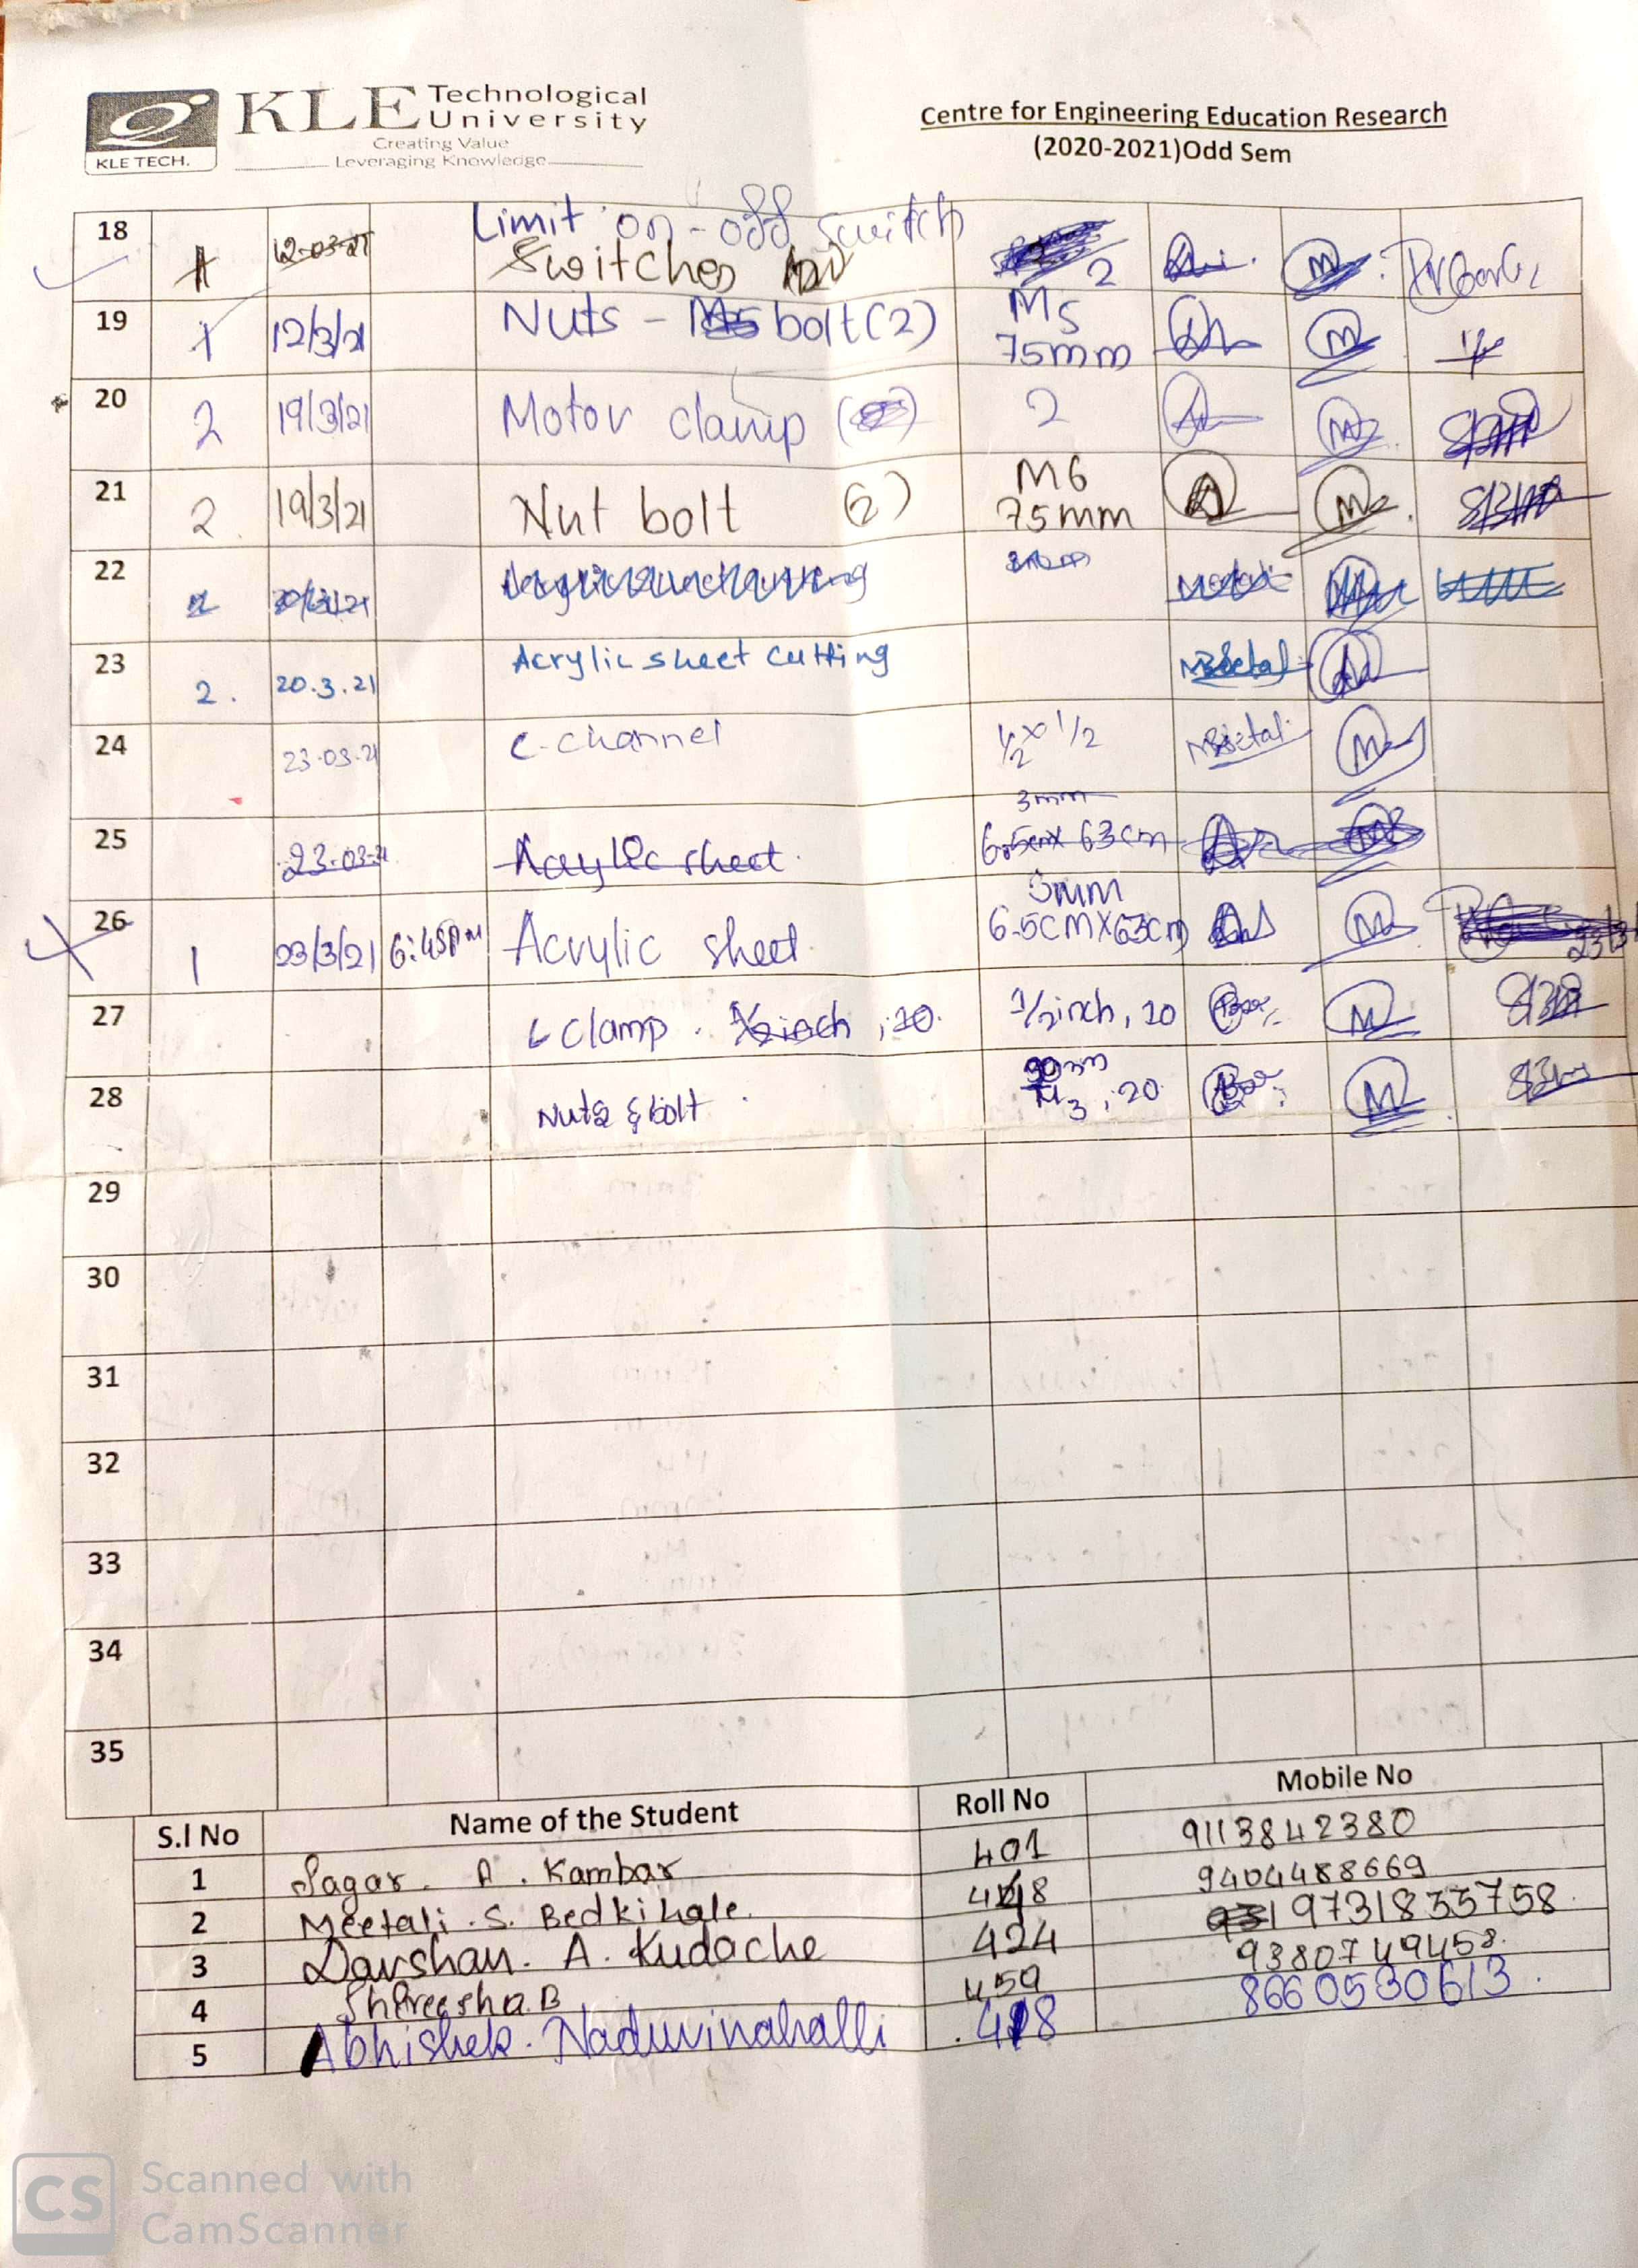 KLE Technological University
Creating Value
Leveraging Knowledge
KLE TECH.
Centre for Engineering Education Research
(2020-2021)Odd Sem
18 12-03-21 Limit on-off switch
Switches 2
19 1 12/3/21 Nuts - bolt (2) M5 75mm
20 2 19/3/21 Motor clamp 2
21 2. 19/3/21 Nut bolt (2) M6 75mm
22
23 2. 20.3.21 Acrylic sheet cutting
24 23-03-21 C-channel 1/2 x 1/2
25 23-03-21 Acrylic sheet. 3mm 6.5cm x 63cm
26 1 23/3/21 6:45PM Acrylic sheet 3mm 6.5CMX63cm
27 L clamp. 1/2inch, 10. 1/2inch, 10
28 Nuts & bolt M3, 20
29
30
31
32
33
34
35
S.l No Name of the Student Roll No Mobile No
1 Sagar. A. Kambar 401 9113842380
2 Meetali. S. Bedkihale. 9404488669
3 Darshan. A. Kudache 424 9731835758.
4 Shreesha.B 459 9380749458.
5 Abhishek. Naduvinahalli 418 8660530613.
CS Scanned with
CamScanner